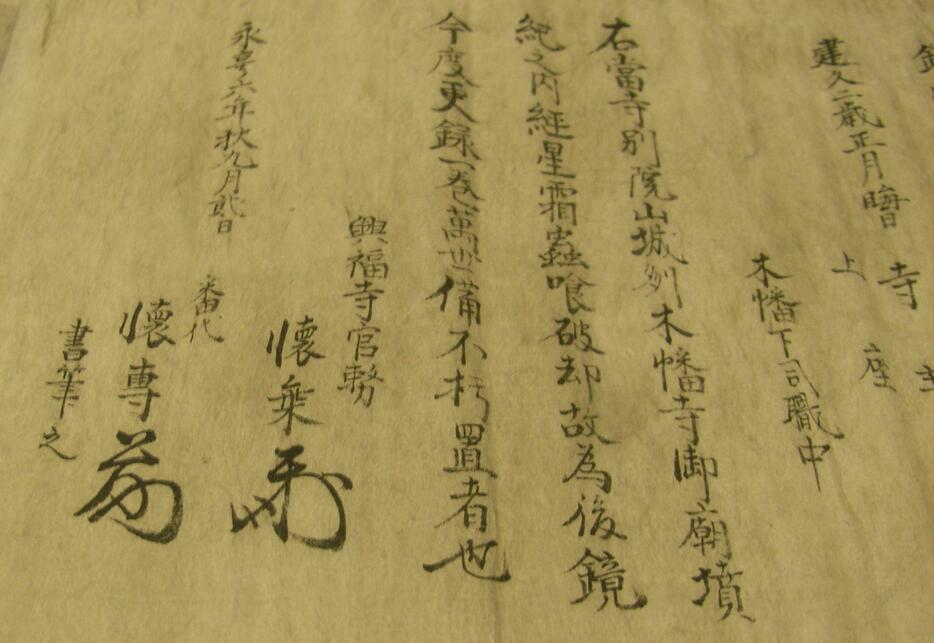 寺
座
建久二歳正月晦日 上
木幡下司職中
右當寺別院山城列木幡寺御廟墳
紀之内経星霜蟲喰破却故為後鏡
今度更録一巻萬世備不朽置者也
興福寺官勢
懐乗
永享六年秋九月貮日
番代
懐専
書筆之